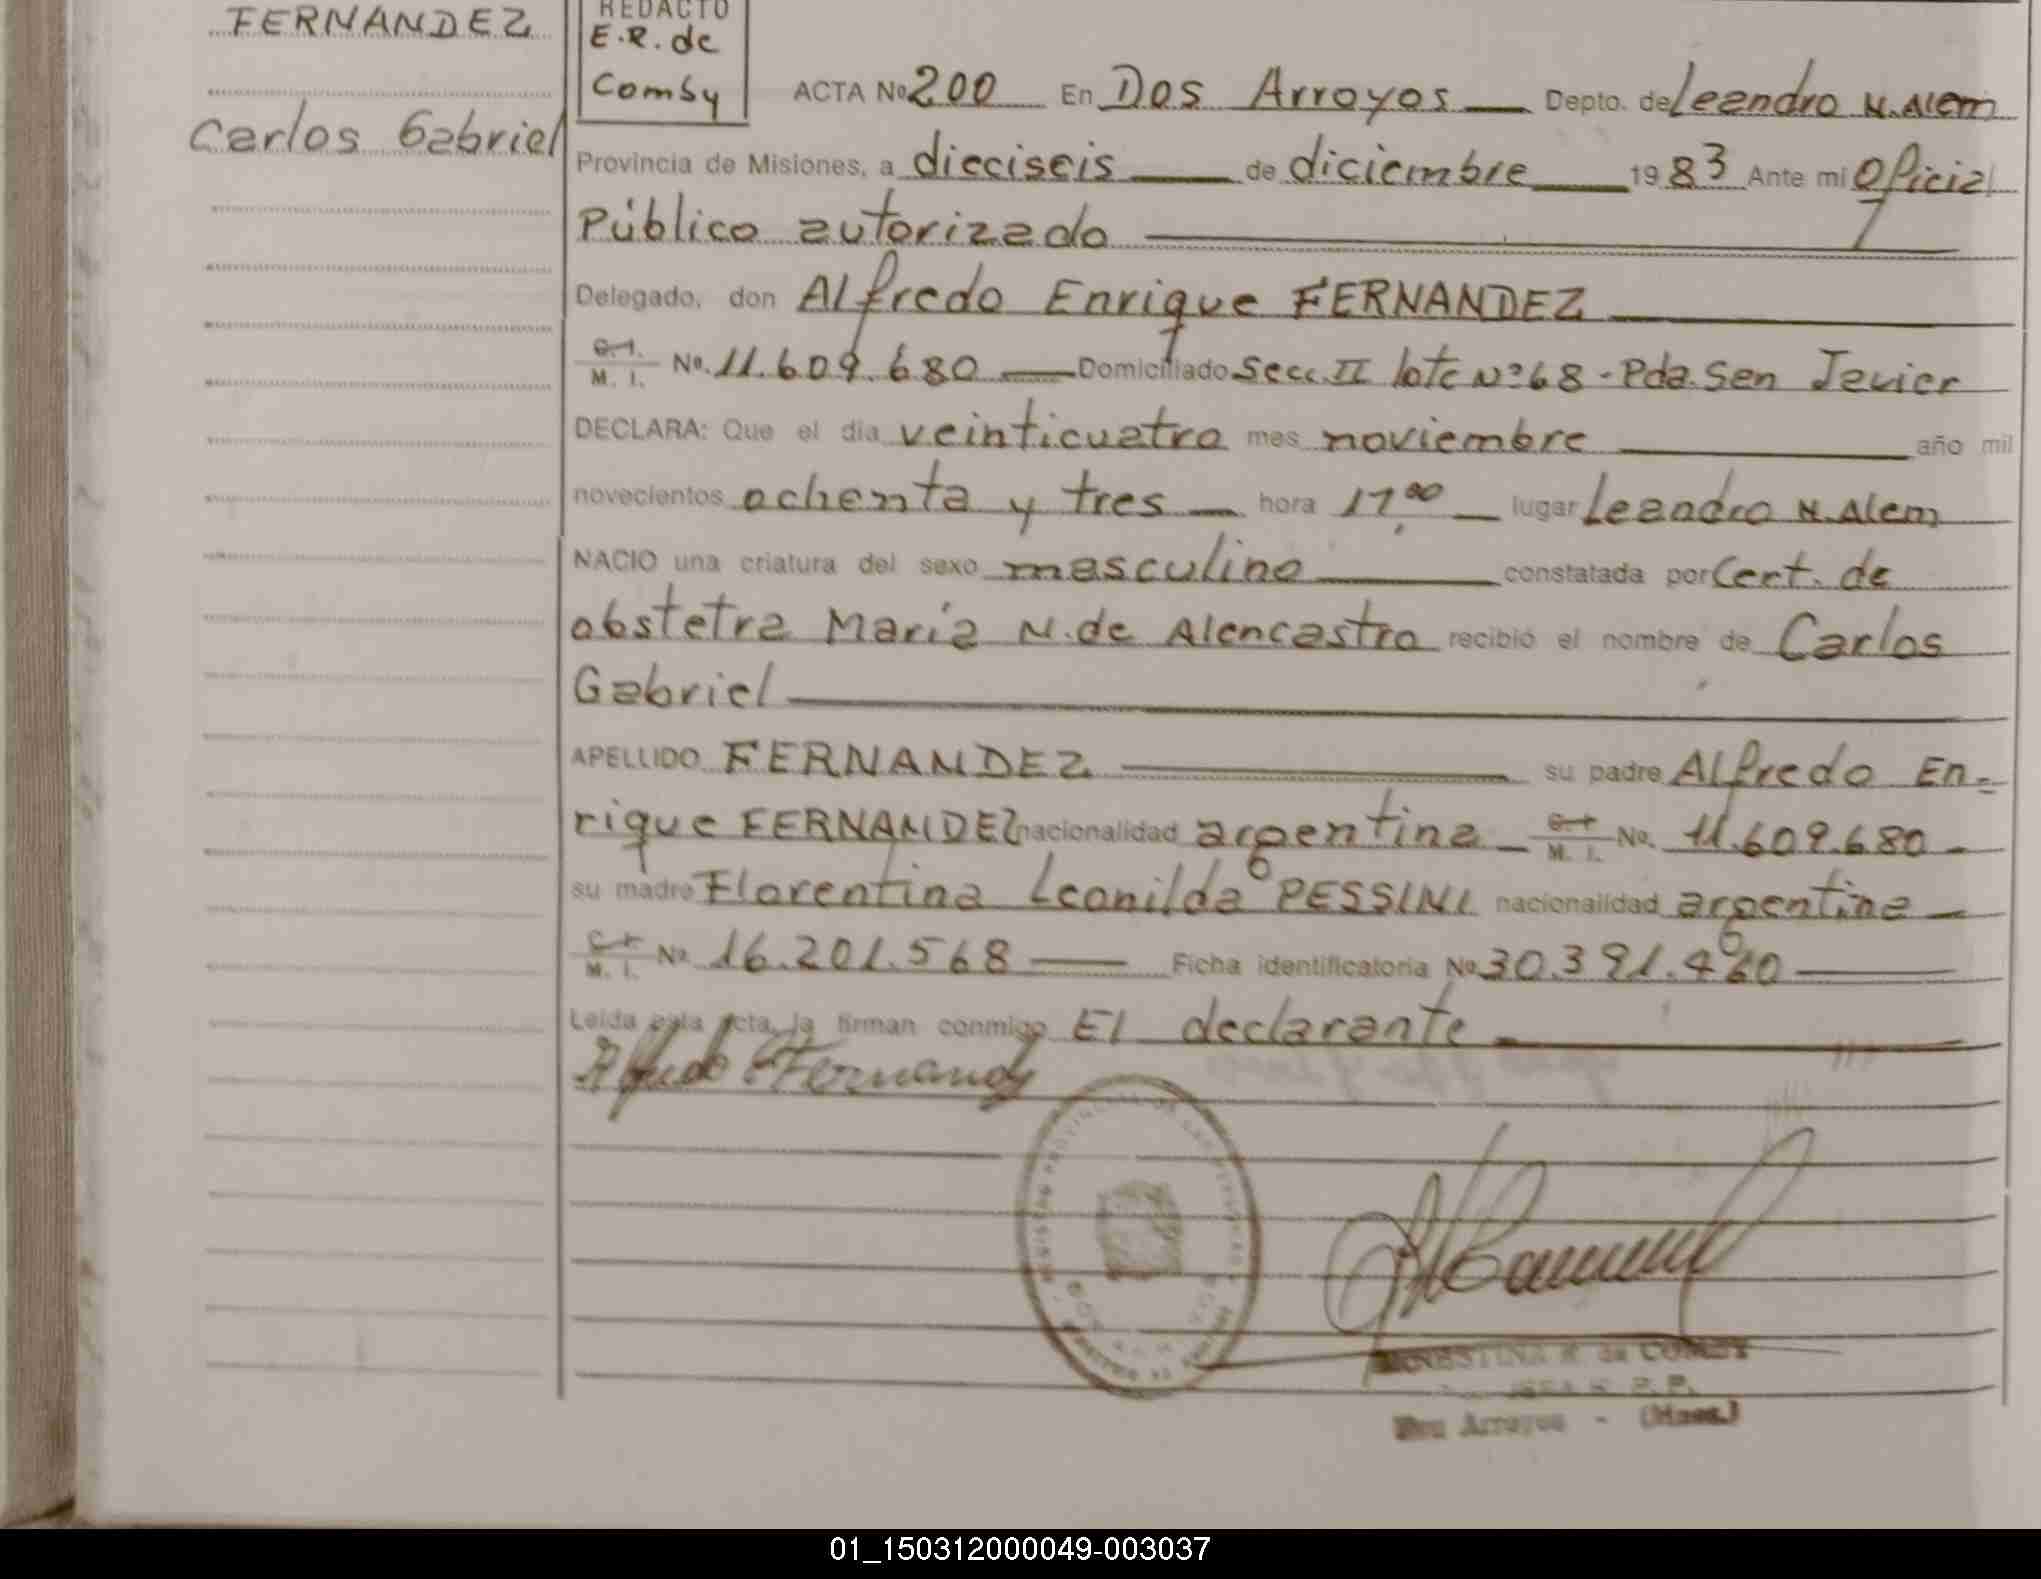 FERNANDEZ
Carlos Gabriel
REDACTO
E.R. de
Comby
ACTA No 200 En Dos Arroyos Depto. de Leandro N. Alem
Provincia de Misiones, a dieciseis de diciembre 1983 Ante mi Oficial
Público autorizado
Delegado, don Alfredo Enrique FERNANDEZ
C.I. M. I. No. 11.609.680 Domiciliado Secc. II lote Nº 68 - Pda. San Javier
DECLARA: Que el dia veinticuatro mes noviembre año mil
novecientos ochenta y tres hora 17,00 lugar Leandro N. Alem
NACIO una criatura del sexo masculino constatada por Cert. de
obstetra Maria N. de Alencastro recibió el nombre de Carlos
Gabriel
APELLIDO FERNANDEZ su padre Alfredo En=
rique FERNANDEZ nacionalidad argentina C.I. M. I. No. 11.609.680
su madre Florentina Leonilda PESSINI nacionalidad argentina
C.I. M. I. No 16.201.568 Ficha identificatoria No 30.391.460
Leida esta acta, la firman conmigo El declarante
Alfredo E Fernandez
de COMBY
Dos Arroyos - (Mnes.)
01_150312000049-003037